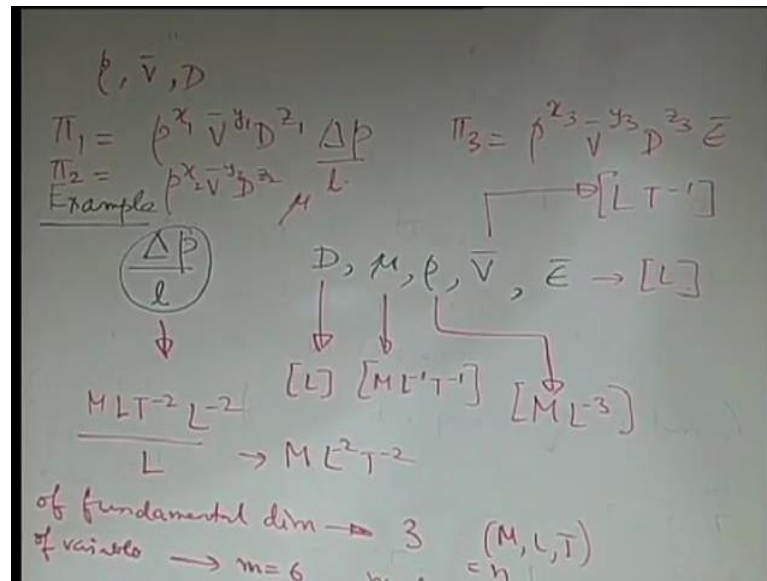 ρ, V̄, D
π₁ = ρ^x₁ V̄^y₁ D^z₁ Δp/l
π₃ = ρ^x₃ V̄^y₃ D^z₃ ε̄
π₂ = ρ^x₂ V̄^y₂ D^z₂ μ
Example
[L T⁻¹]
Δp/l
D, μ, ρ, V̄, ε̄ → [L]
[L] [M L⁻¹ T⁻¹] [M L⁻³]
MLT⁻² L⁻² / L → M L⁻² T⁻²
of fundamental dim → 3 (M, L, T)
of variables → m = 6 = n